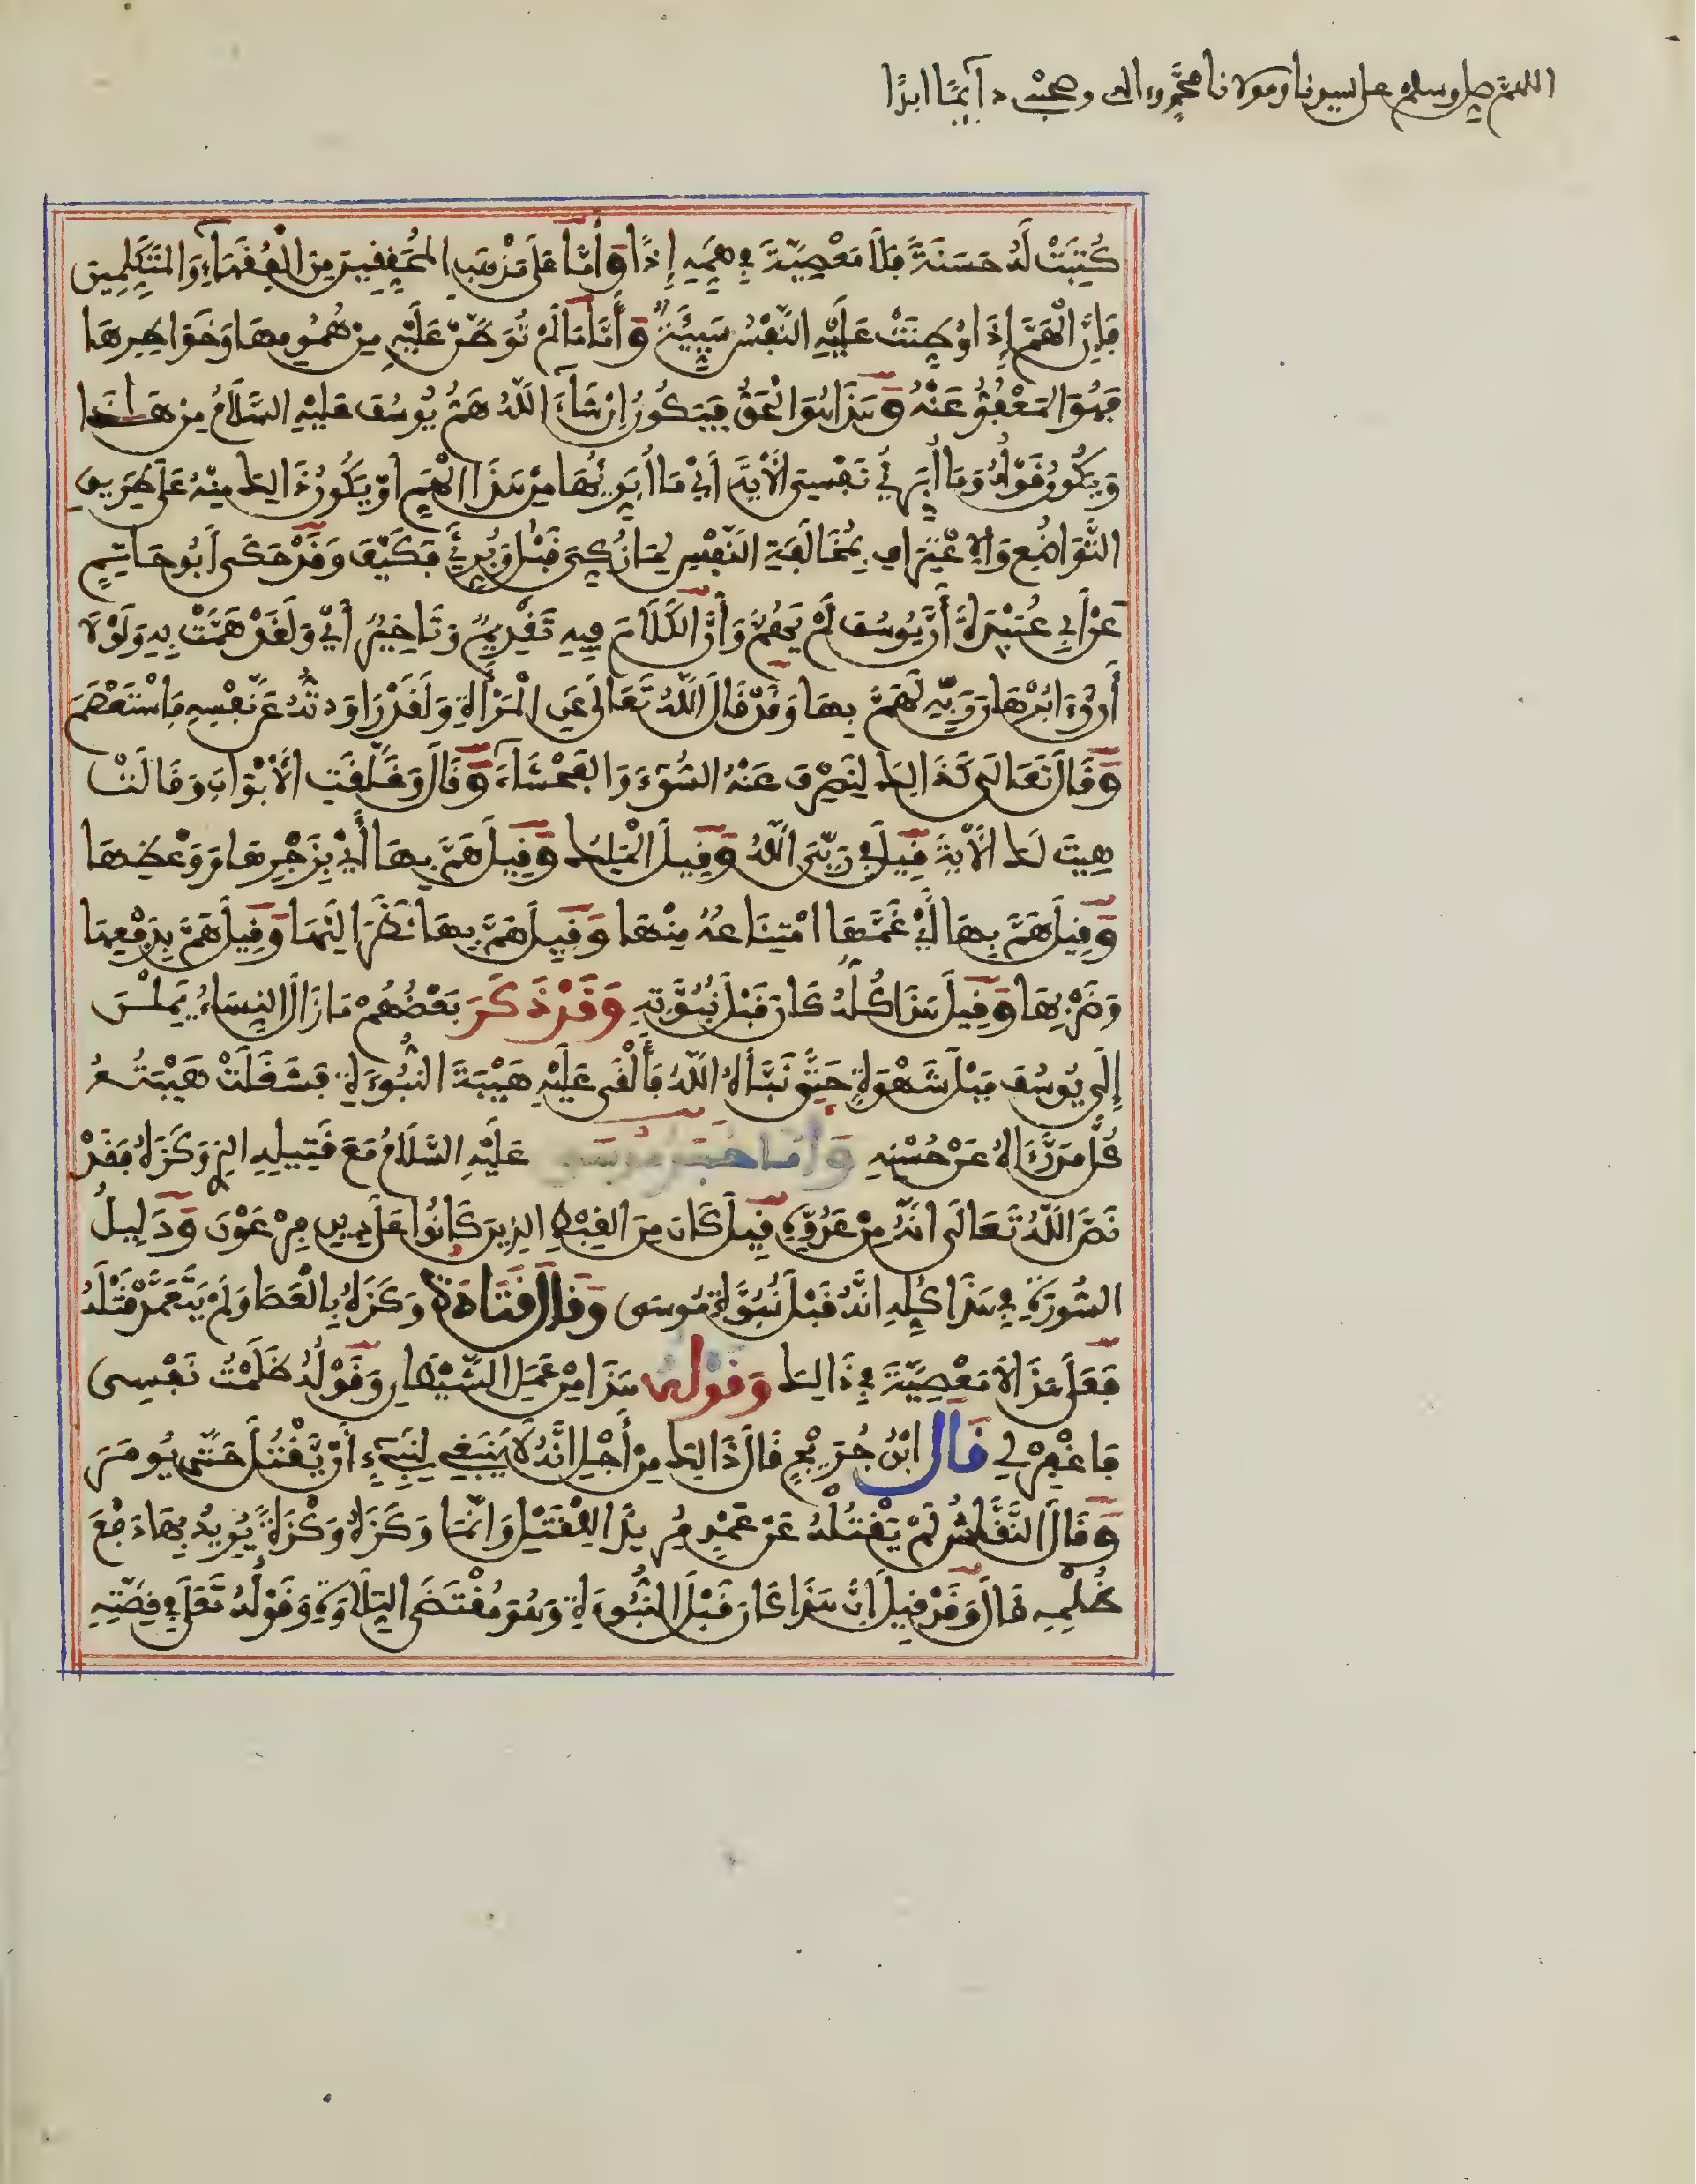 اللهم صل وسلم على سيدنا ومولانا محمد وءاله وصحبه دآيما ابدا
كُتِبَتْ لَهُ حَسَنَةً فَلَا مَعْصِيَةَ فِي هَمِّهِ إِذًا وَأَمَّا عَلَى مَذْهَبِ الْمُحَقِّقِينَ مِنَ الْفُقَهَاءِ وَالْمُتَكَلِّمِينَ
فَإِنَّ الْهَمَّ إِذَا وُطِّنَتْ عَلَيْهِ النَّفْسُ سَيِّئَةٌ وَأَمَّا مَا لَمْ تُوَطَّنْ عَلَيْهِ مِنْ هُمُومِهَا وَخَوَاطِرِهَا
فَهُوَ الْمَعْفُوُّ عَنْهُ وَهَذَا هُوَ الْحَقُّ فَيَكُونُ إِنْ شَآءَ اللَّهُ هَمُّ يُوسُفَ عَلَيْهِ السَّلَامُ مِنْ هَاذَا
وَيَكُونُ قَوْلُهُ وَمَا أُبَرِّئُ نَفْسِي الْآيَةَ أَيْ مَا أُبَرِّئُهَا مِنْ هَذَا الْهَمِّ أَوْ يَكُونُ ذَالِكَ مِنْهُ عَلَى طَرِيقِ
التَّوَاضُعِ وَالِاعْتِرَافِ بِمُخَالَفَةِ النَّفْسِ لِمَا زُكِّيَ قَبْلُ وَبُرِّئَ فَكَيْفَ وَقَدْ حَكَى أَبُو حَاتِمٍ
عَنْ أَبِي عُبَيْدَةَ أَنَّ يُوسُفَ لَمْ يَهُمَّ وَأَنَّ الْكَلَامَ فِيهِ تَقْدِيمٌ وَتَاخِيرٌ أَيْ وَلَقَدْ هَمَّتْ بِهِ وَلَوْلَا
أَن رَّءَا بُرْهَانَ رَبِّهِ لَهَمَّ بِهَا وَقَدْ قَالَ اللَّهُ تَعَالَى عَنِ الْمَرْأَةِ وَلَقَدْ رَاوَدتُّهُ عَن نَّفْسِهِ فَاسْتَعْصَمَ
وَقَالَ تَعَالَى كَذَالِكَ لِنَصْرِفَ عَنْهُ السُّوءَ وَالْفَحْشَآءَ وَقَالَ وَغَلَّقَتِ الْأَبْوَابَ وَقَالَتْ
هِيتَ لَكَ الْآيَةَ قِيلَ فِي رَبِّيَ اللَّهُ وَقِيلَ الْمَلِكُ وَقِيلَ هَمَّ بِهَا أَيْ بِزَجْرِهَا وَوَعْظِهَا
وَقِيلَ هَمَّ بِهَا أَيْ غَمَّهَا امْتِنَاعُهُ مِنْهَا وَقِيلَ هَمَّ بِهَا نَظَرَ إِلَيْهَا وَقِيلَ هَمَّ بِدَفْعِهَا
وَضَرْبِهَا وَقِيلَ هَذَا كُلُّهُ كَانَ قَبْلَ نُبُوَّتِهِ وَقَدْ ذَكَرَ بَعْضُهُمْ مَا زَالَ النِّسَاءُ يَمِلْنَ
إِلَى يُوسُفَ مَيْلَ شَهْوَةٍ حَتَّى نَبَّأَهُ اللَّهُ فَأَلْقَى عَلَيْهِ هَيْبَةَ النُّبُوءَةِ فَشَغَلَتْ هَيْبَتُهُ
كُلَّ مَن رَّءَاهُ عَنْ حُسْنِهِ وَأَمَّا خَبَرُ مُوسَى عَلَيْهِ السَّلَامُ مَعَ قَتِيلِهِ الذِي وَكَزَهُ فَقَدْ
نَصَّ اللَّهُ تَعَالَى أَنَّهُ مِنْ عَدُوِّهِ قِيلَ كَانَ مِنَ الْقِبْطِ الذِينَ كَانُوا عَلَى دِينِ فِرْعَوْنَ وَدَلِيلُ
السُّورَةِ فِي هَذَا كُلِّهِ أَنَّهُ قَبْلَ نُبُوَّةِ مُوسَى وَقَالَ قَتَادَةُ وَكَزَهُ بِالْعَصَا وَلَمْ يَتَعَمَّدْ قَتْلَهُ
فَعَلَى هَذَا لَا مَعْصِيَةَ فِي ذَالِكَ وَقَوْلُهُ هَذَا مِنْ عَمَلِ الشَّيْطَانِ وَقَوْلُهُ ظَلَمْتُ نَفْسِي
فَاغْفِرْ لِي قَالَ ابْنُ جُرَيْجٍ قَالَ ذَالِكَ مِنْ أَجْلِ أَنَّهُ لَا يَنْبَغِي لِنَبِيءٍ أَنْ يَّقْتُلَ حَتَّى يُومَرَ
وَقَالَ النَّقَّاشُ لَمْ يَقْتُلْهُ عَنْ عَمْدٍ مُرِيدًا لِلْقَتْلِ وَإِنَّمَا وَكَزَهُ وَكْزَةً يُرِيدُ بِهَا دَفْعَ
ظُلْمِهِ قَالَ وَقَدْ قِيلَ إِنَّ هَذَا كَانَ قَبْلَ النُّبُوءَةِ وَهُوَ مُقْتَضَى التِّلَاوَةِ وَقَوْلُهُ تَعَلَى فِي قِصَّتِهِ